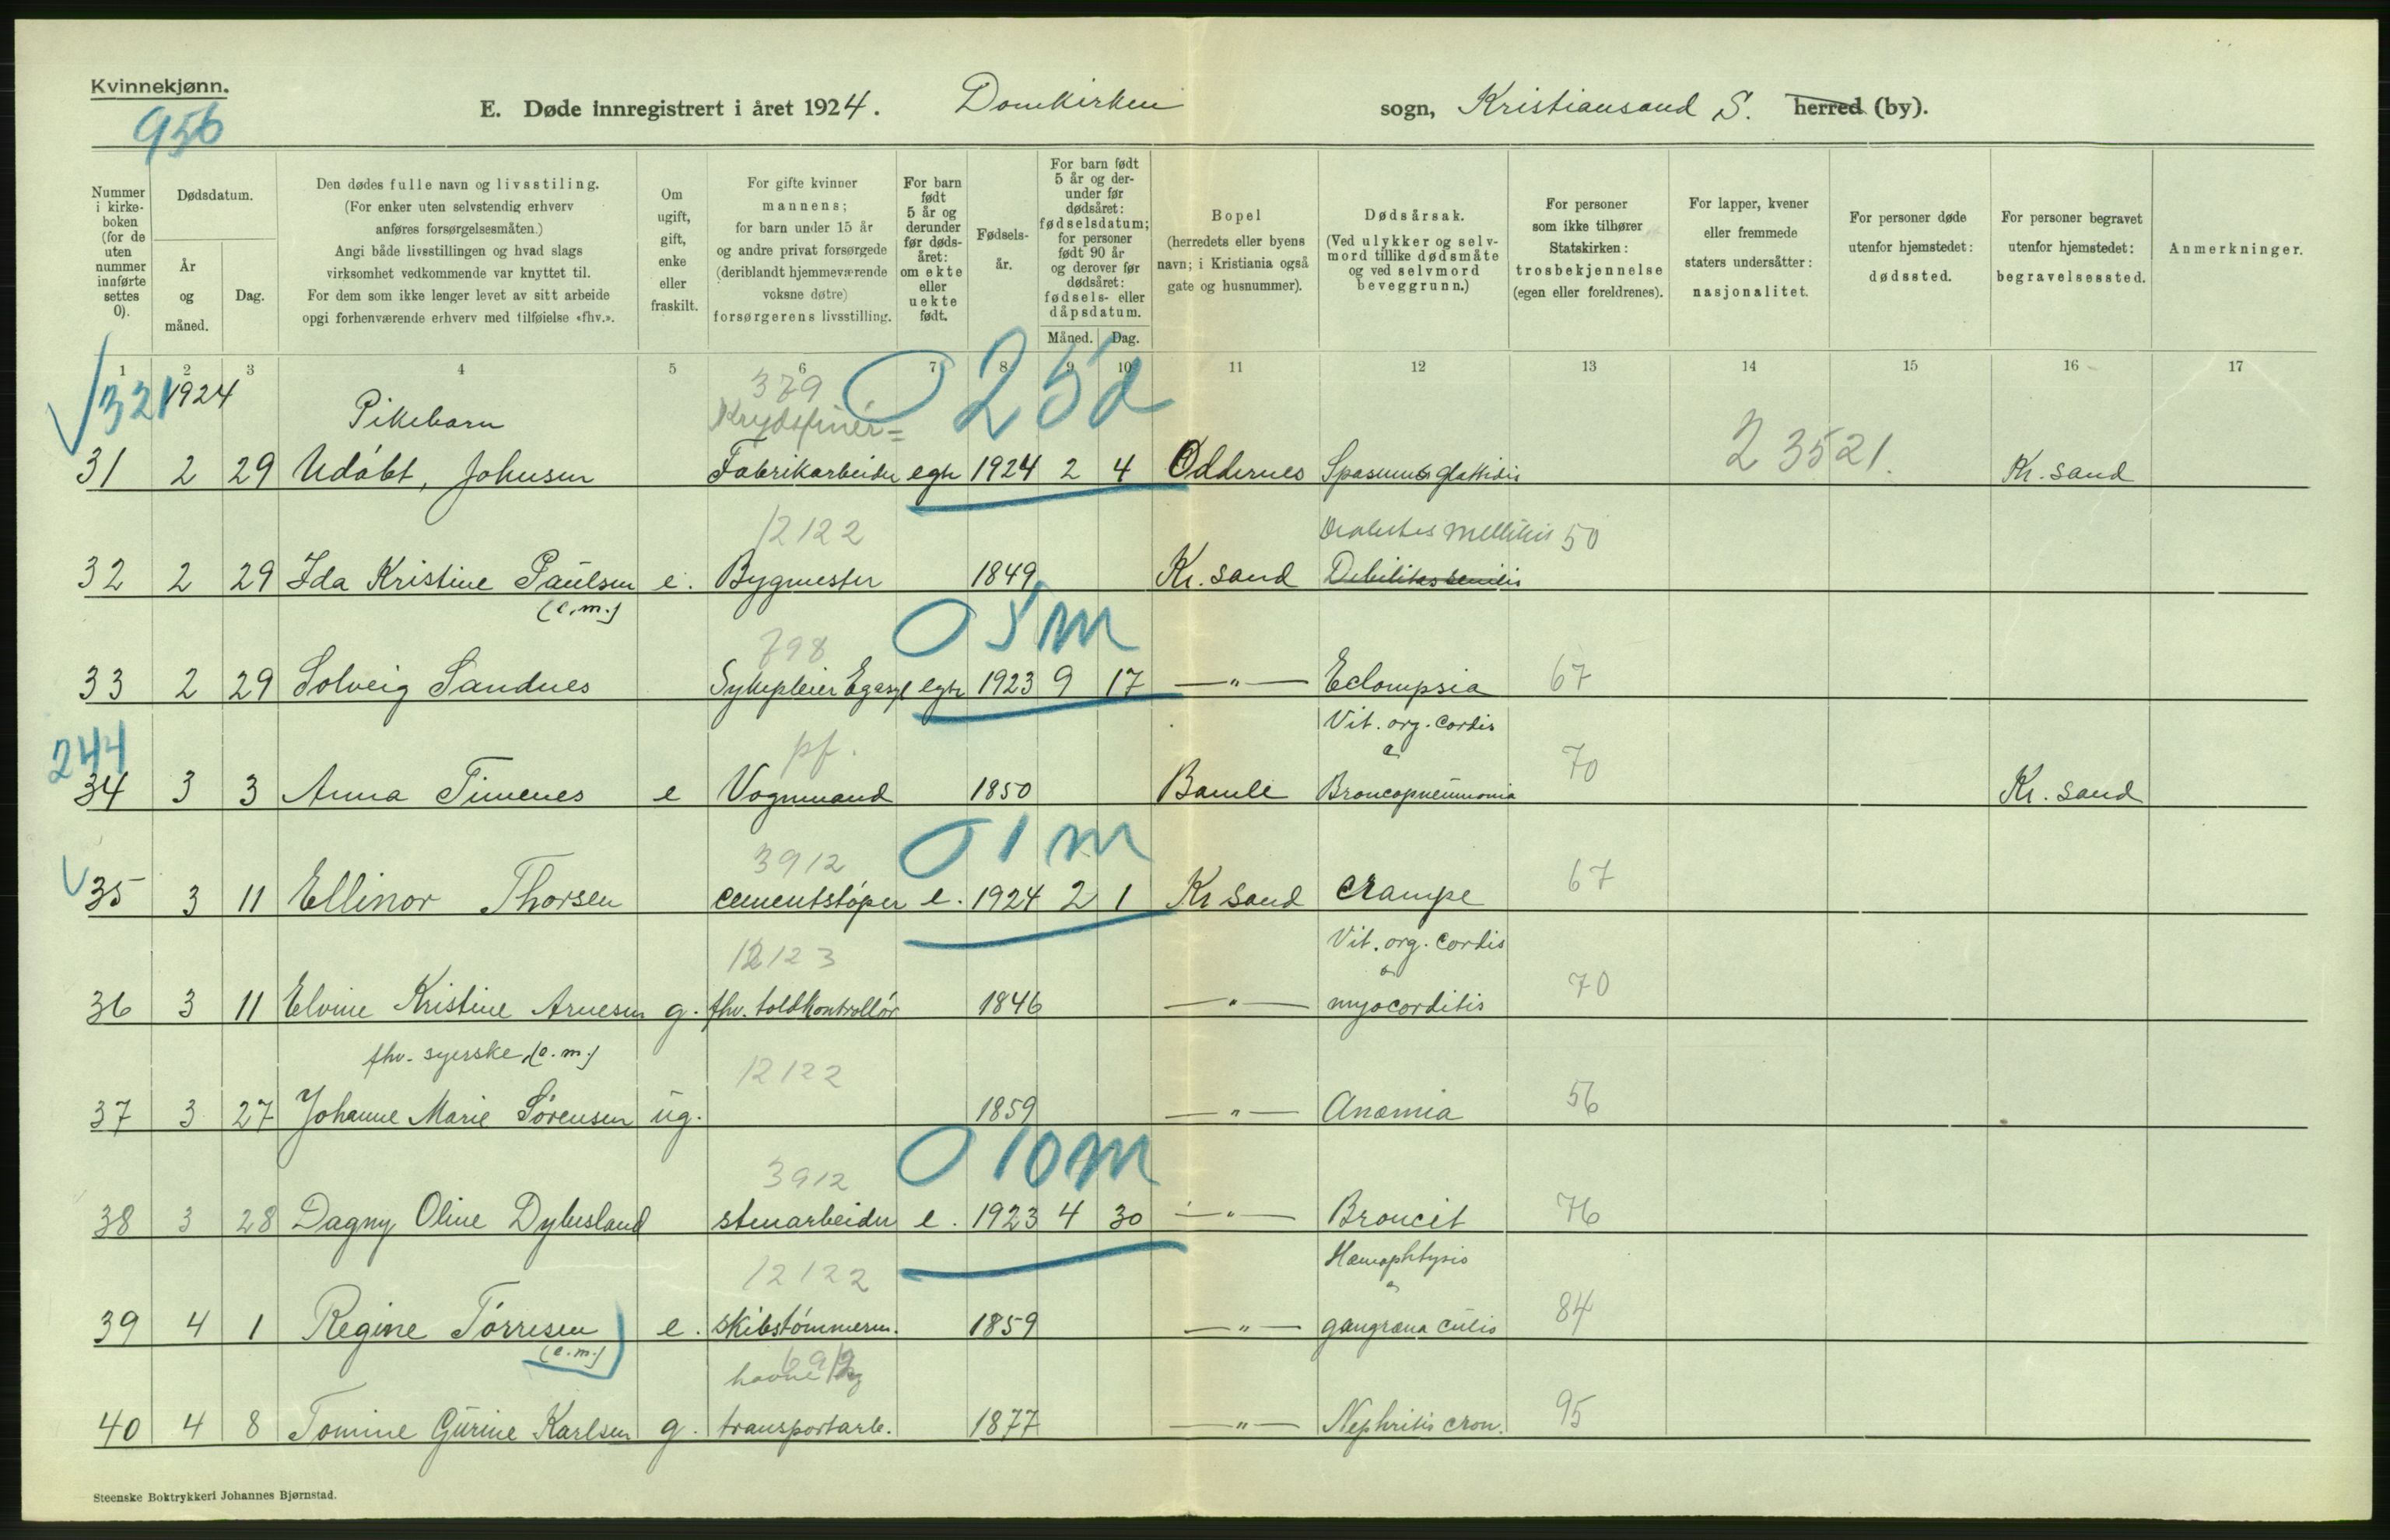 Kvinnekjønn.
956
E. Døde innregistrert i året 1924. Domkirken sogn, Kristiansand S. herred (by).
Nummer i kirke-boken (for de uten nummer innførte settes 0).
Dødsdatum.
År og måned.
Dag.
Den dødes fulle navn og livsstiling.
(For enker uten selvstendig erhverv
anføres forsørgelsesmåten.)
Angi både livsstillingen og hvad slags
virksomhet vedkommende var knyttet til.
For dem som ikke lenger levet av sitt arbeide
opgi forhenværende erhverv med tilføielse «fhv.».
Om ugift, gift, enke eller fraskilt.
For gifte kvinner
mannens;
for barn under 15 år
og andre privat forsørgede
(deriblandt hjemmeværende
voksne døtre)
forsørgerens livsstilling.
For barn født 5 år og derunder før døds-året: om ekte eller uekte født.
Fødsels-år.
For barn født 5 år og der-under før dødsåret: fødselsdatum; for personer født 90 år og derover før dødsåret: fødsels- eller dåpsdatum.
Måned. Dag.
Bopel
(herredets eller byens
navn; i Kristiania også
gate og husnummer).
Dødsårsak.
(Ved ulykker og selv-
mord tillike dødsmåte
og ved selvmord
beveggrunn.)
For personer
som ikke tilhører
Statskirken:
trosbekjennelse
(egen eller foreldrenes).
For lapper, kvener
eller fremmede
staters undersåtter:
nasjonalitet.
For personer døde
utenfor hjemstedet:
dødssted.
For personer begravet
utenfor hjemstedet:
begravelsessted.
Anmerkninger.
1 2 3 4 5 6 7 8 9 10 11 12 13 14 15 16 17
321 1924 379 0 25d
Pikebarn Krydsfinér=
31 2 29 Udøbt, Johnsen Fabrikarbeider egte 1924 2 4 Oddernes Spasmus glottidis 23521. Kr. sand
12122 Diabetes Mellitus 50
32 2 29 Ida Kristine Paulsen e. Bygmester 1849 Kr. sand Debilitas senilis
(e.m.)
798 0 5 m
33 2 29 Solveig Sandnes Sykepleier Egasyl egte 1923 9 17 —"— Eclampsia 67
244 pf. Vit. org. cordis
&
34 3 3 Anna Timenes e Vognmand 1850 Bamle Broncopneumonia 70 Kr. sand
3912 0 1 m
35 3 11 Ellinor Thorsen cementstøper e. 1924 2 1 Kr sand crampe 67
12123 Vit. org. cordis
&
36 3 11 Elvine Kristine Arnesen g. fhv. toldkontrollør 1846 —"— myocorditis 70
fhv. syerske (e.m.) 12122
37 3 27 Johanne Marie Sørensen ug. 1859 —"— Anæmia 56
3912 0 10 m
38 3 28 Dagny Oline Dybesland stenarbeider e. 1923 4 30 —"— Broncit 76
12122 Hæmophtysis
&
39 4 1 Regine Tørresen e. skibstømmerm. 1859 —"— gangræna cutis 84
(e.m.) havne
40 4 8 Tomine Gurine Karlsen g. transportarb. 1877 —"— Nephritis cron. 95
Steenske Boktrykkeri Johannes Bjørnstad.